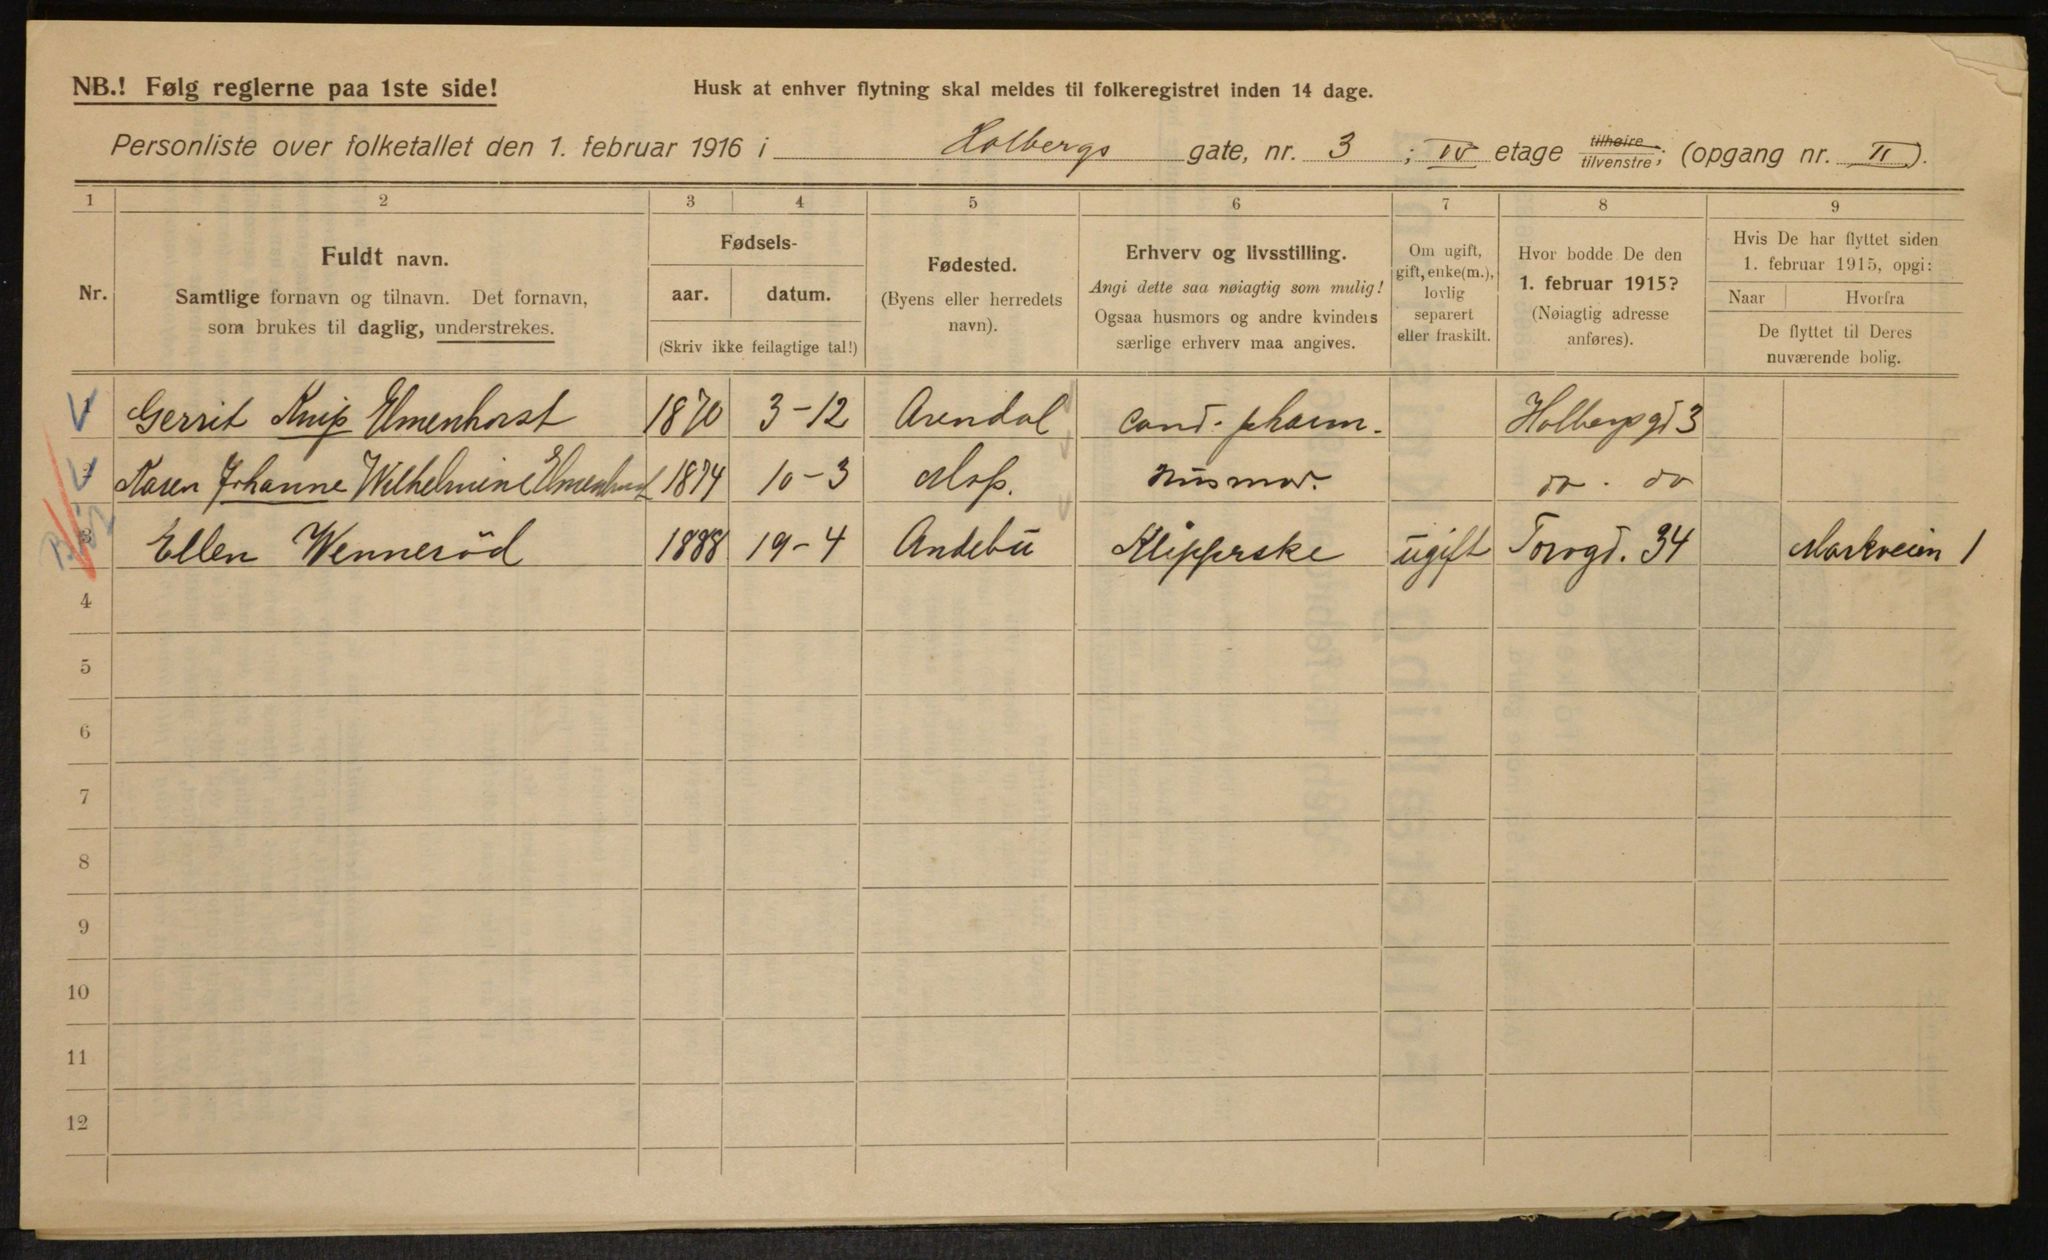 NB.! Følg reglerne paa 1ste side!
Husk at enhver flytning skal meldes til folkeregistret inden 14 dage.
Personliste over folketallet den 1. februar 1916 i Holbergs gate, nr. 3 ; IV etage tilhøire tilvenstre; (opgang nr. II).
1 2 3 4 5 6 7 8 9
Nr.
Fuldt navn.
Samtlige fornavn og tilnavn. Det fornavn,
som brukes til daglig, understrekes.
Fødsels-
aar. datum.
(Skriv ikke feilagtige tal!)
Fødested.
(Byens eller herredets
navn).
Erhverv og livsstilling.
Angi dette saa nøiagtig som mulig!
Ogsaa husmors og andre kvinders
særlige erhverv maa angives.
Om ugift,
gift, enke(m.),
lovlig
separert
eller fraskilt.
Hvor bodde De den
1. februar 1915?
(Nøiagtig adresse
anføres).
Hvis De har flyttet siden
1. februar 1915, opgi:
Naar Hvorfra
De flyttet til Deres
nuværende bolig.
1 Gerrit Knip Elmenhorst 1870 3-12 Arendal cand. pharm. Holbergsgd 3
Karen Johanne Wilhelmine Elmenhorst 1874 10-3 husmor. do. do
3 Ellen Wennerød 1888 19-4 Andebu Klipperske ugift Torvgd. 34 Markveien 1
4
5
6
7
8
9
10
11
12